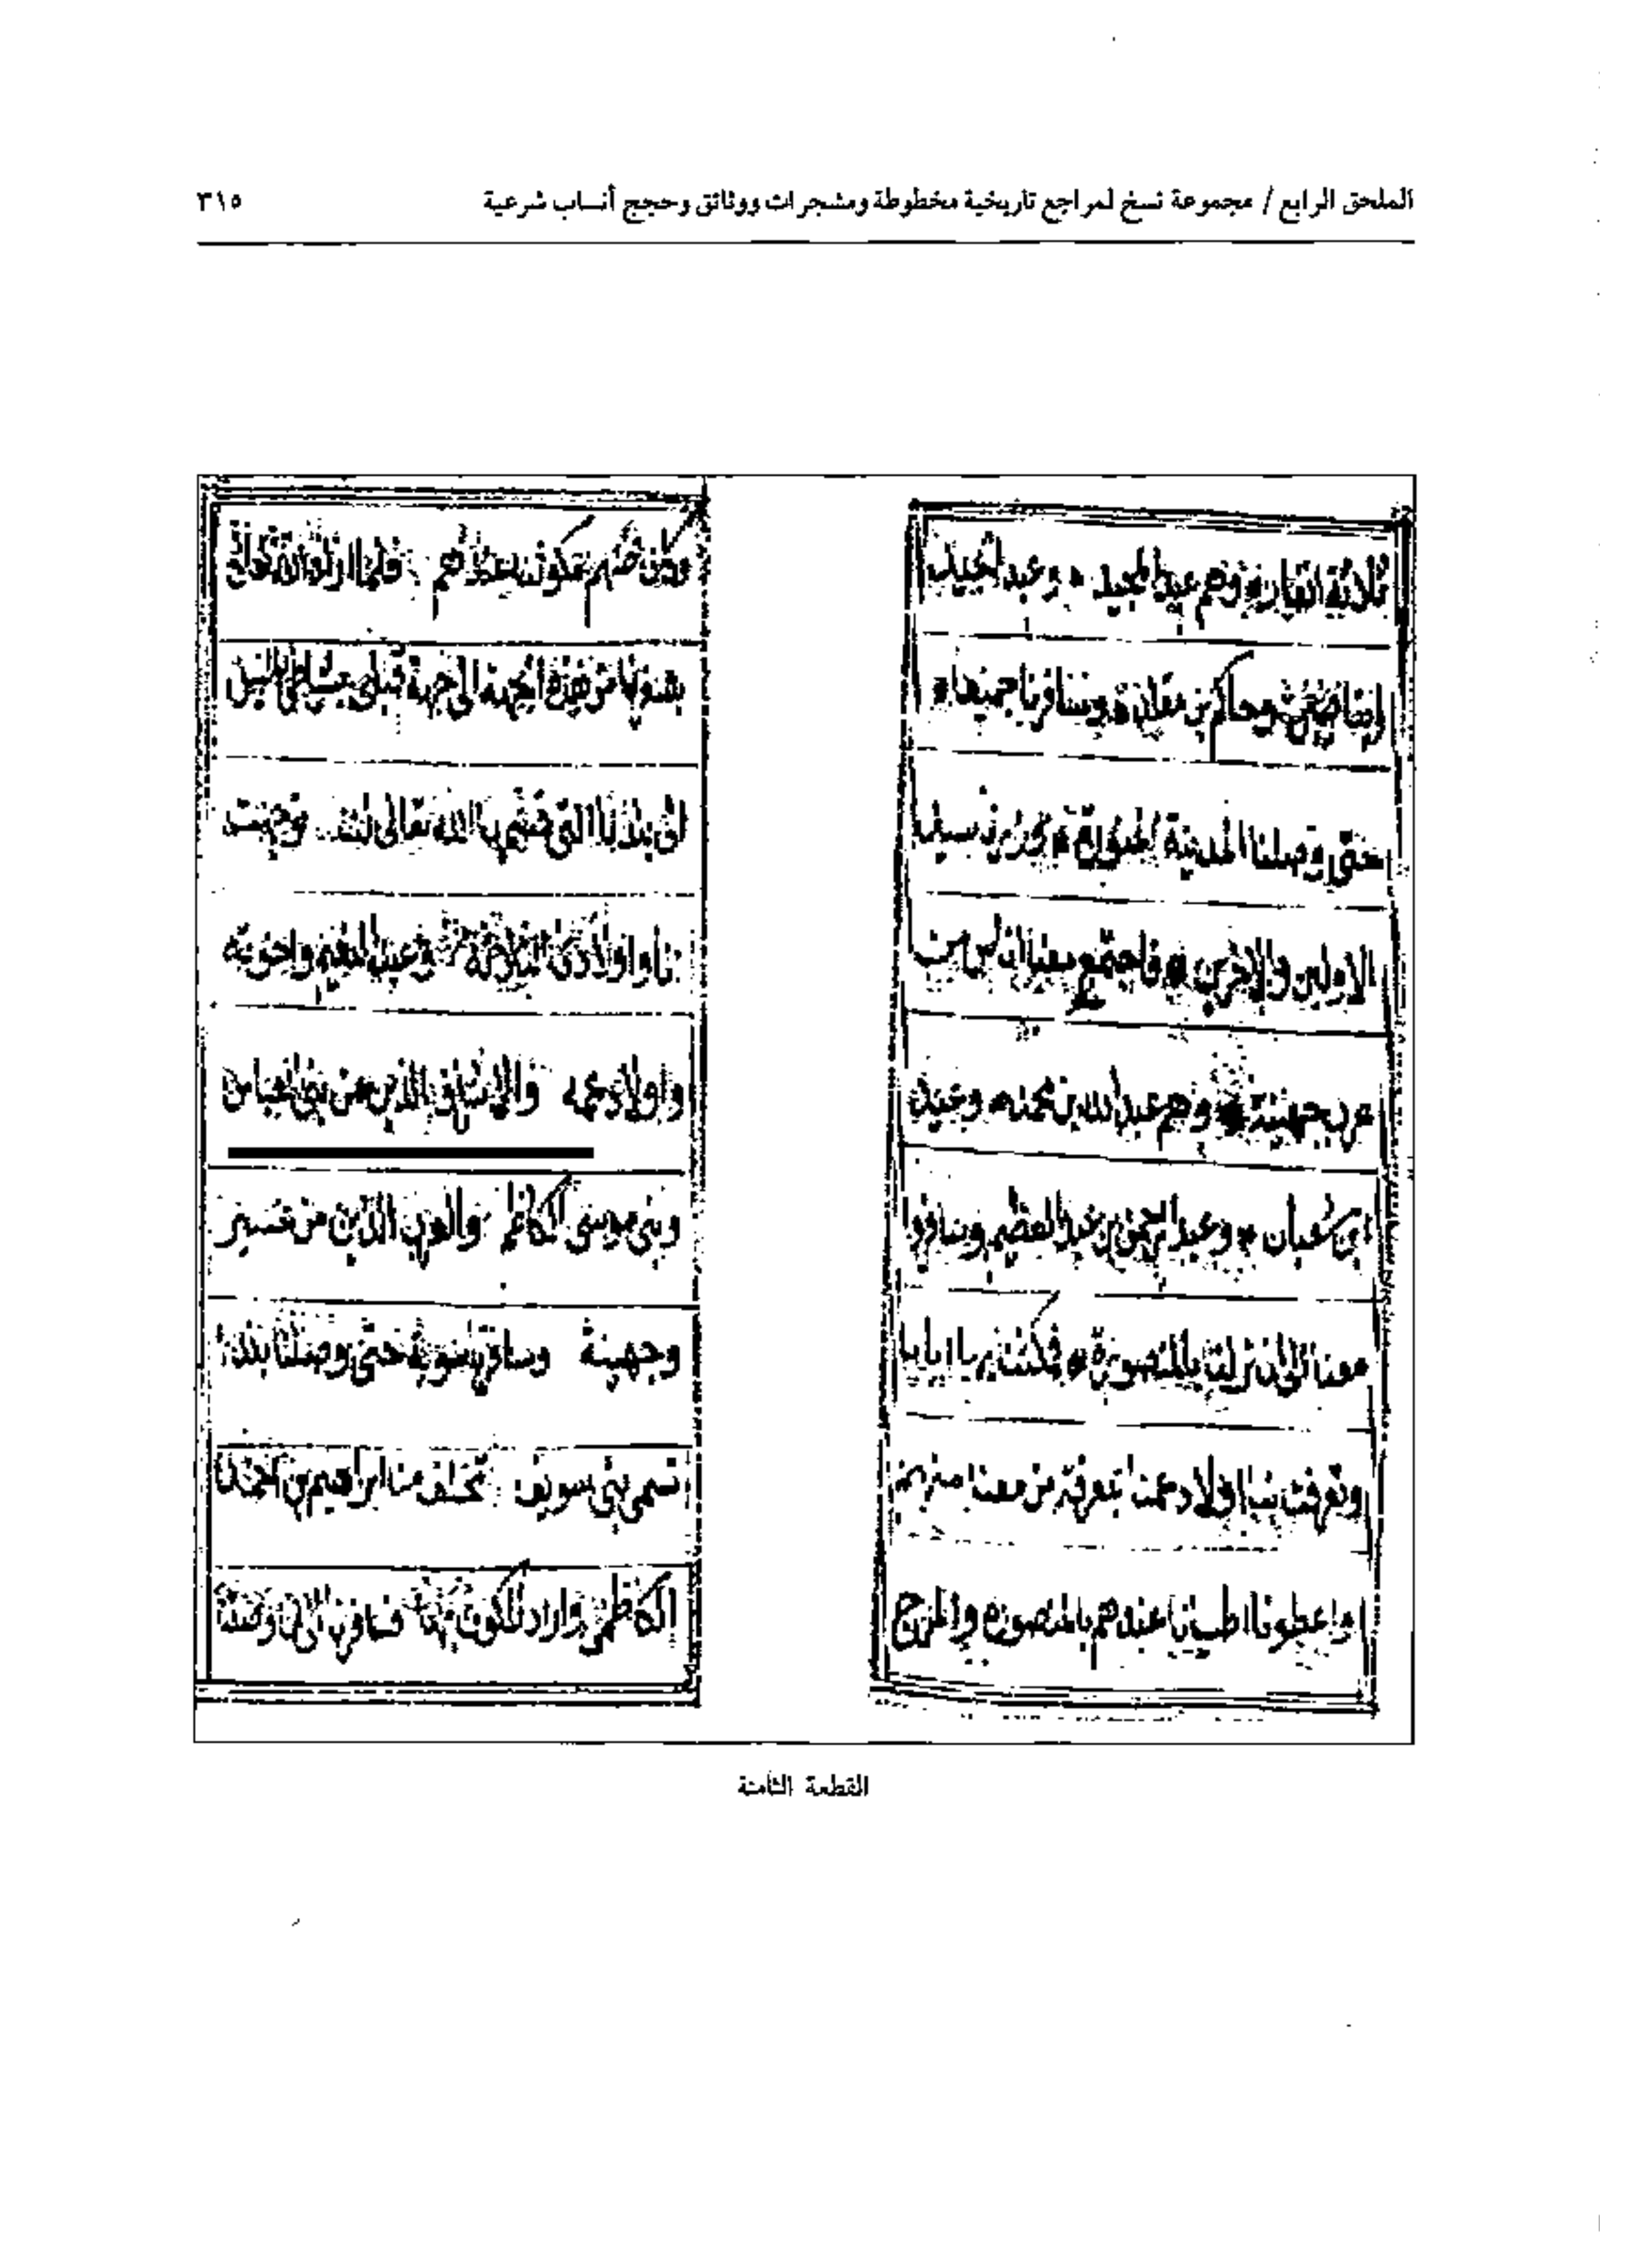 الملحق الرابع / مجموعة نسخ لمراجع تاريخية مخطوطة ومشجرات ووثائق وحجج أنساب شرعية ٣١٥
ثلاثة انفار وهم عبد المجيد وعبد الحميد
بن مقلد وسافرنا جميعا
حتى وصلنا المدينة المنورة
الاولين والاخرين فاجتمع معنا اناس من
عرب جهينة وهم عبد الله بن محمد وعبيد
ابن شعبان وعبد الرحمن بن عبد العظيم وسافروا
معنا الى ان نزلنا بالمنصورة فمكثنا بها اياما
وتعرفت بنا اولاد عمنا بمعرفة من معنا منهم
واعطونا اطيانا عندهم بالمنصورة والمرج
فلما اراد الله تعالى
من هذه الجهة الى جهة قبلى بشاطئ النيل
الى بلدنا التى قسمها الله تعالى لنا توجهت
انا واولادى الثلاثة وعبد المنعم واخوته
واولاد عمه والاشراف الذين من بنى العباس
وبنى موسى الكاظم والعرب الذين من عسير
وجهينة وسافرنا سوية حتى وصلنا بلدة
تسمى بنى سويف تخلف منا ابراهيم بن احمد
الكاظمى واراد المكوث بها فسافرنا الى ان وصلنا
القطعة الثامنة